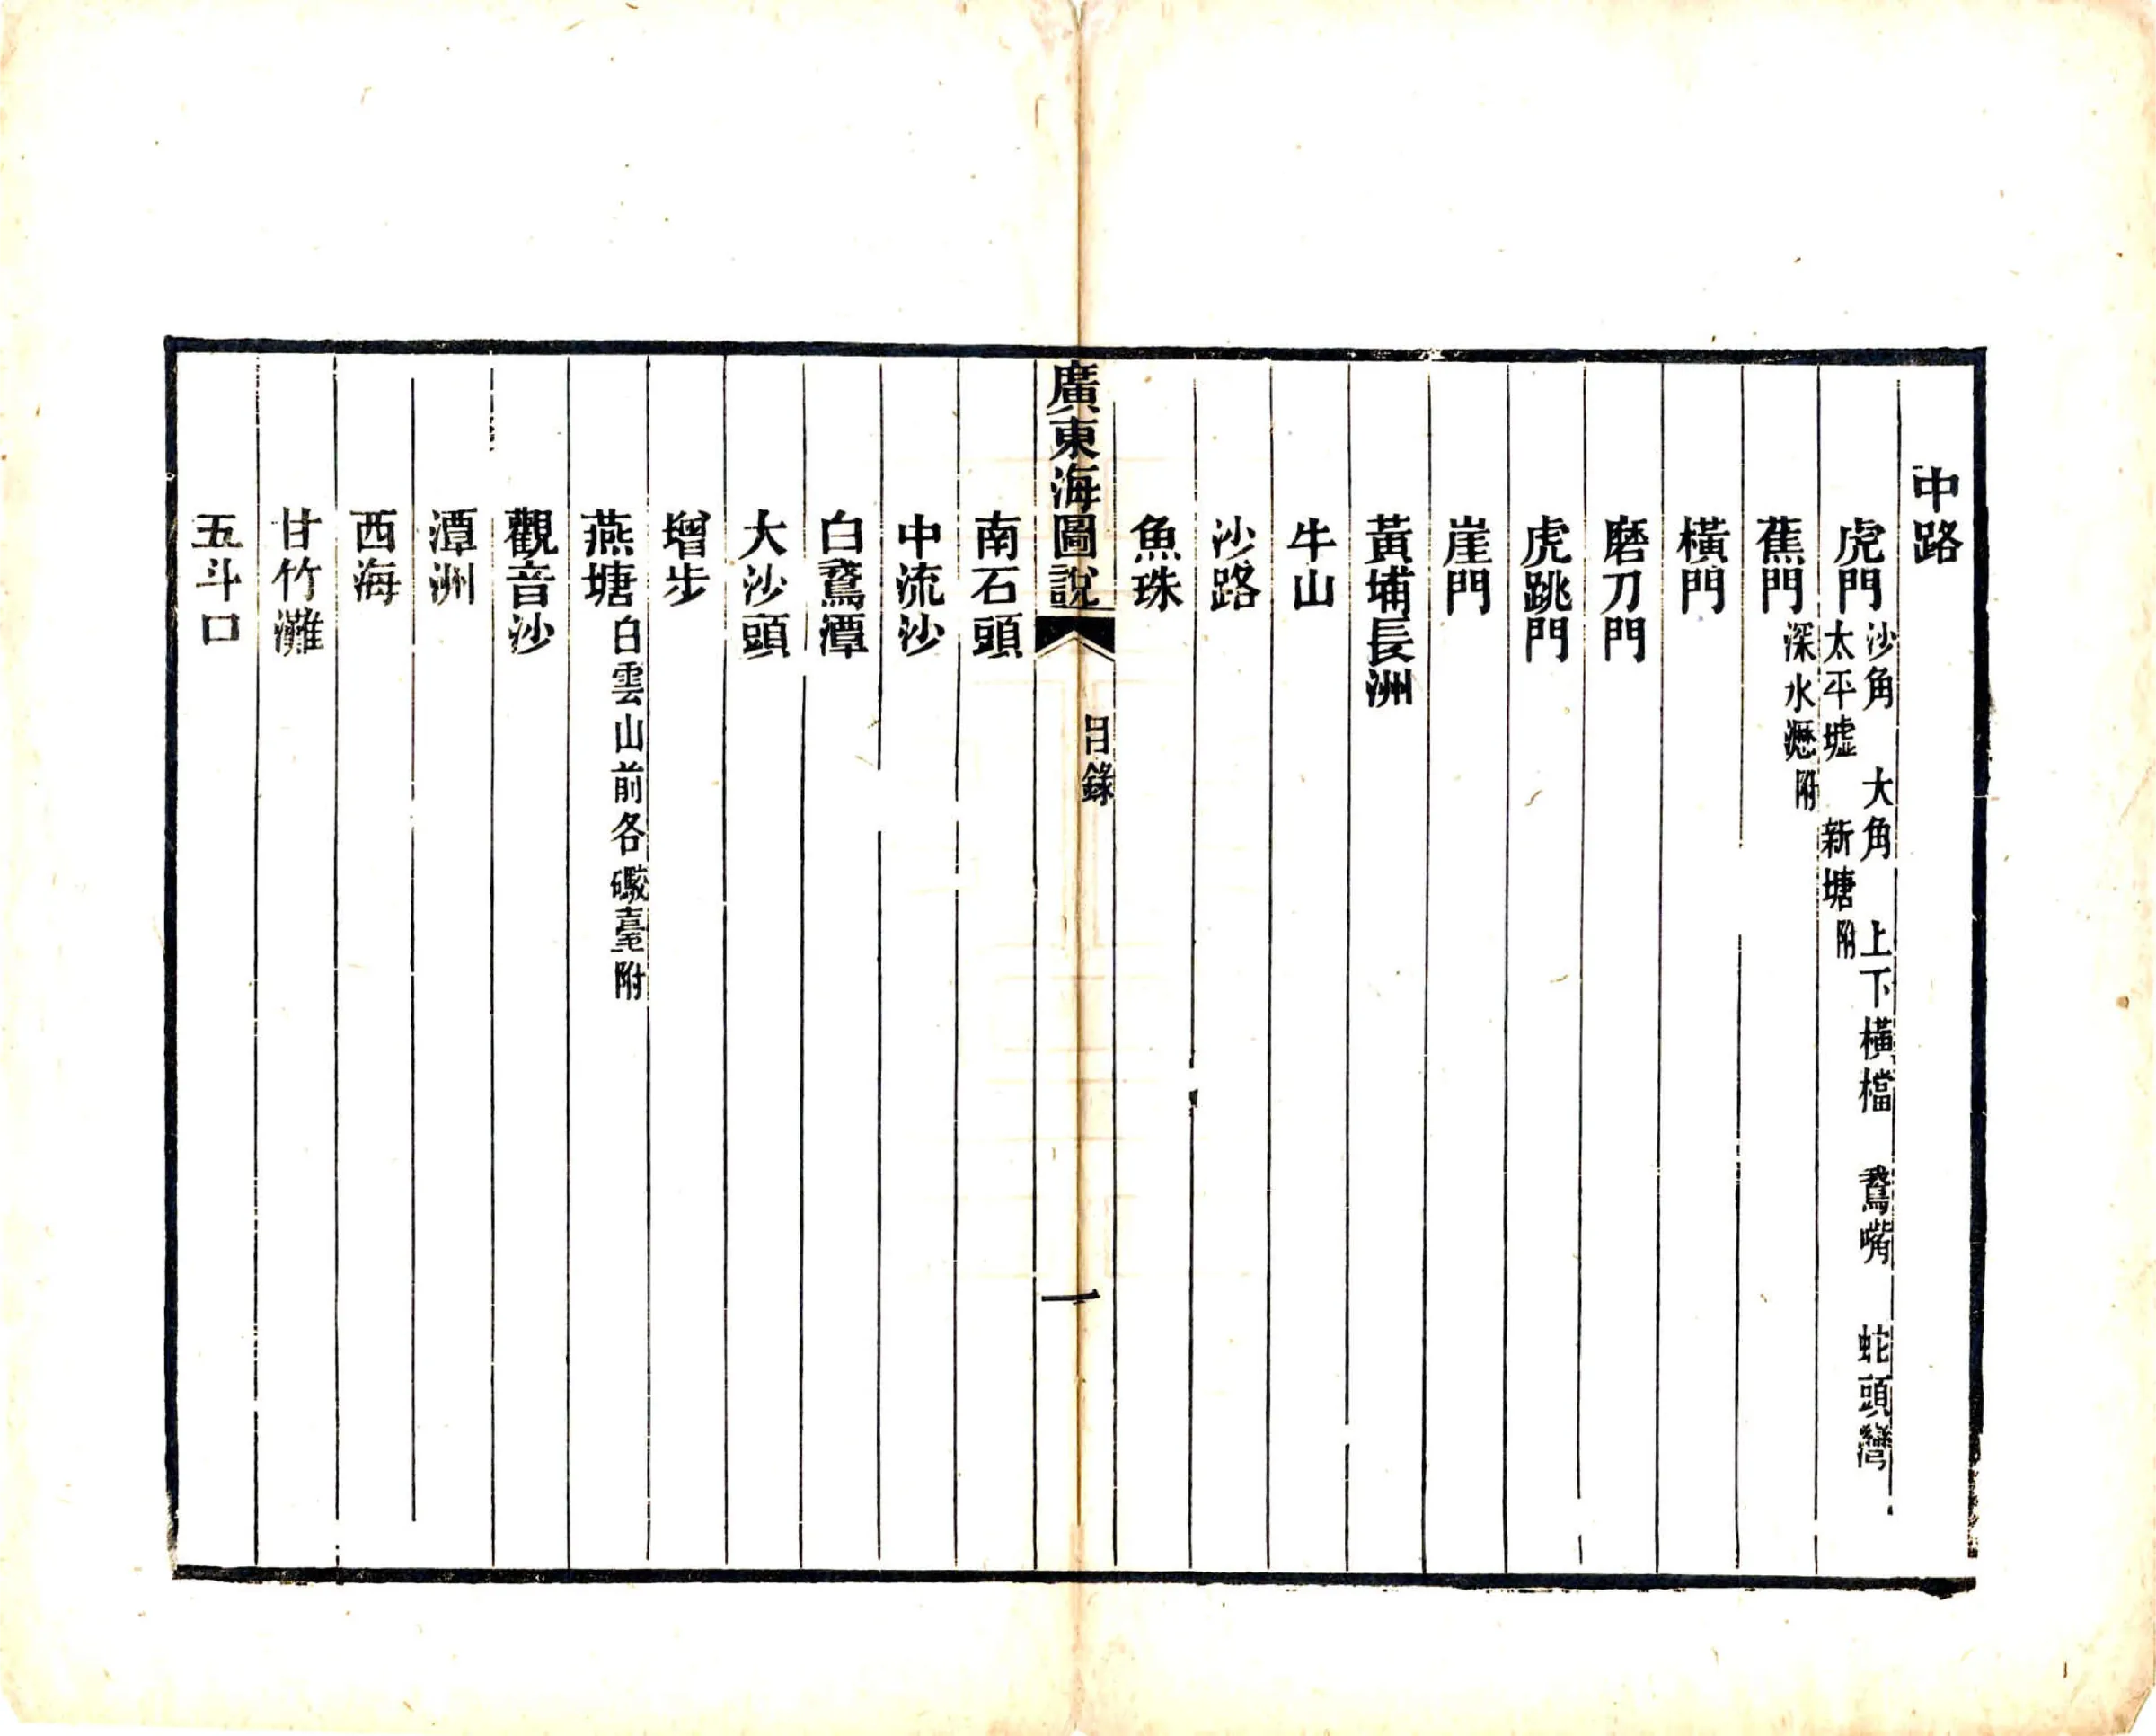 中路
虎門沙角　大角　上下橫檔　鵞嘴　蛇頭灣
太平墟　新塘附
蕉門深水瀝附
橫門
磨刀門
虎跳門
崖門
黃埔長洲
牛山
沙路
魚珠
廣東海圖說　目錄　一
南石頭
中流沙
白鵞潭
大沙頭
增步
燕塘白雲山前各礮臺附
觀音沙
潭洲
西海
甘竹灘
五斗口